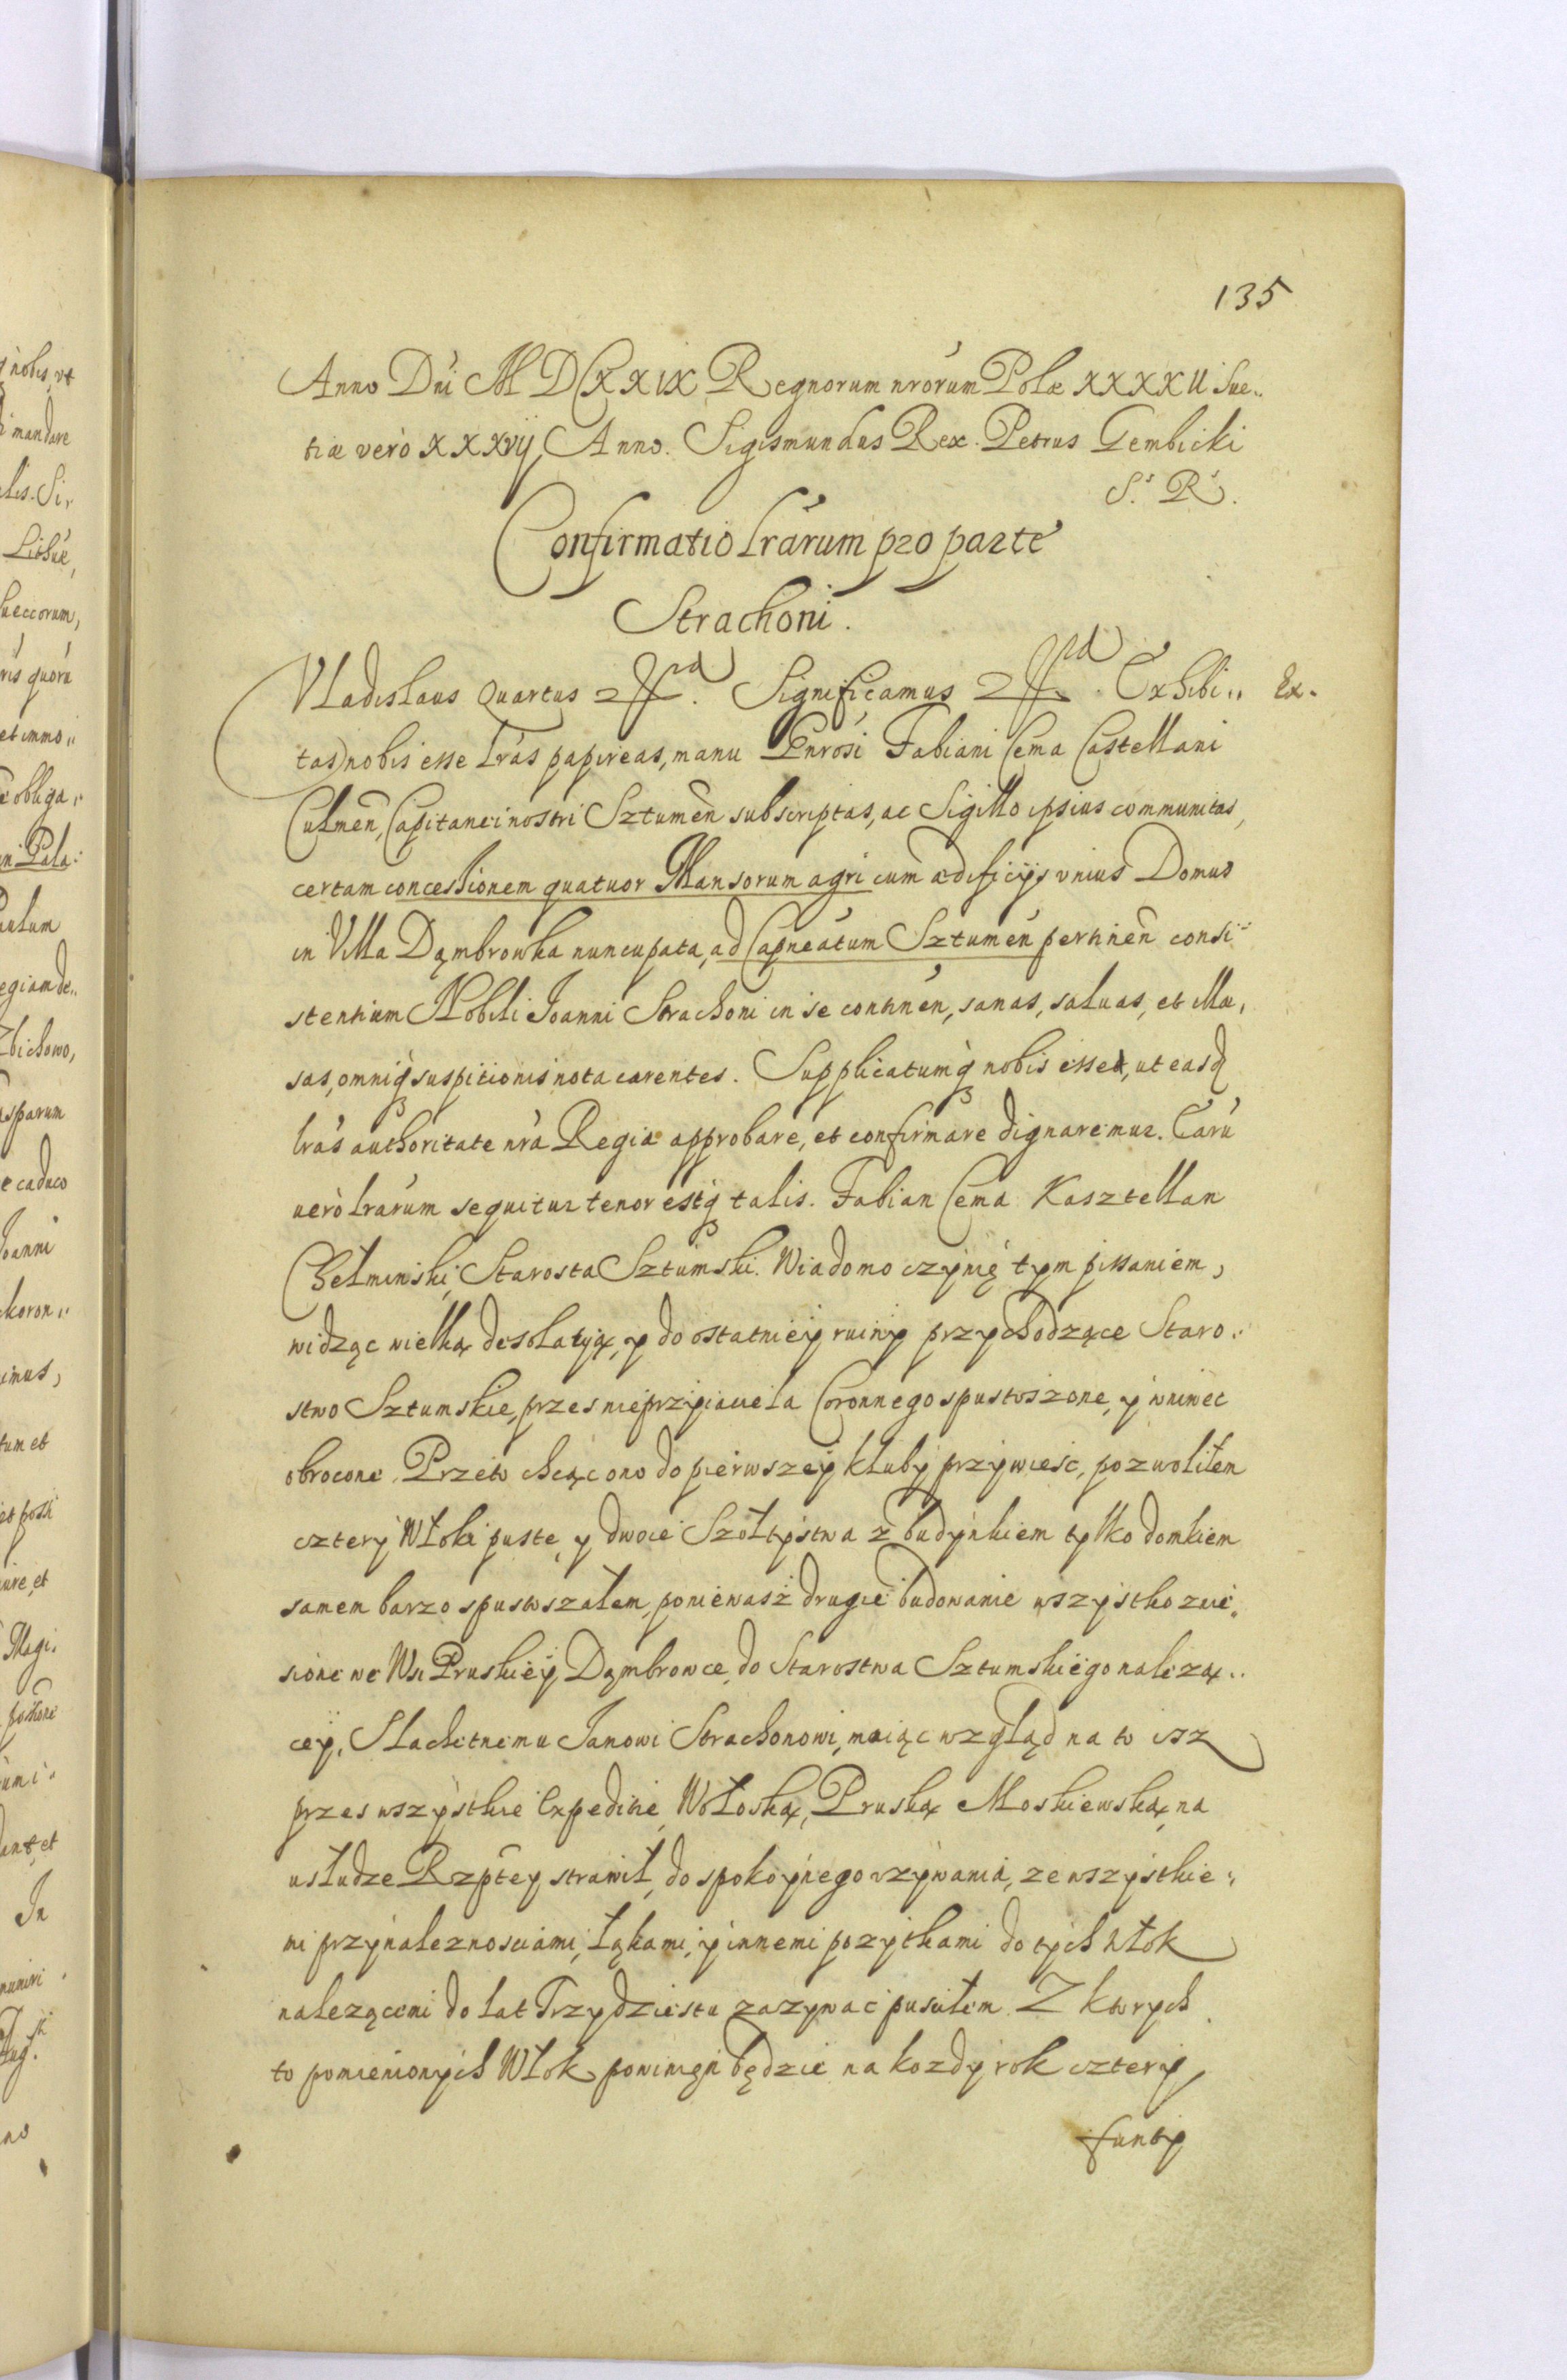 135
Anno Dni M D CXXIX Regnorum nrorum Polæ XXXXII Sue„
tiæ vero XXXvij Anno. Sigismundus Rex. Petrus Gembicki
S. R.
Confirmatio lrarum pro parte
Strachoni.
Vladislaus Quartus Significamus Exhibi„ Ex.
tas nobis esse lras papireas, manu Gnrosi Fabiani Cema Castellani
Culmen, Capitanei nostri Sztumen subscriptas, ac Sigillo ipsius communitas,
certam concessionem quatuor Mansorum agri cum ædificijs vnius Domus
in Villa Dąmbrowka nuncupata, ad Capneatum Sztumen pertinen consi„
stentium Nobili Joanni Strachoni in se continen, sanas, saluas, et illæ,
sas, omniq suspitionis nota carentes. Supplicatumq nobis esse, ut easd
lras authoritate nra Regia approbare, et confirmare dignaremur. Earu
uero lrarum sequitur tenor estq talis. Fabian Cema Kasztellan
Chełminski, Starosta Sztumski. Wiadomo czynię tym pissaniem,
widząc wielką desolatią, y do ostatniey ruiny przychodzące Staro„
stwo Sztumskie, przes nieprzyiaciela Coronnego spustoszone, y wniwec
obrocone. Przeto chcąc ono do pierwszey kluby przywiesc, pozwoliłem
cztery Włoki puste, y dwoie Szołtystwa z budynkiem tylko domkiem
samem barzo spustoszałem, poniewasz drugie budowanie wszystko znie„
sione we Wsi Pruskiey Dąmbrowce, do Starostwa Sztumskiego należą„
cey, Slachetnemu Janowi Strachonowi, maiąc wzgląd na to isz
przes wszystkie Expeditie, Wołoską, Pruską Moskiewską, na
usłudze Rzptey strawił, do spokoynego vzywania, ze wszystkie„
mi przynaleznosciami, łąkami, y innemi pozytkami do tych włok
nalezącemi do lat Trzydziestu zazywac pusciłem. Z ktorych
to pomienionych Włok powinięn będzie na kozdy rok cztery
funty